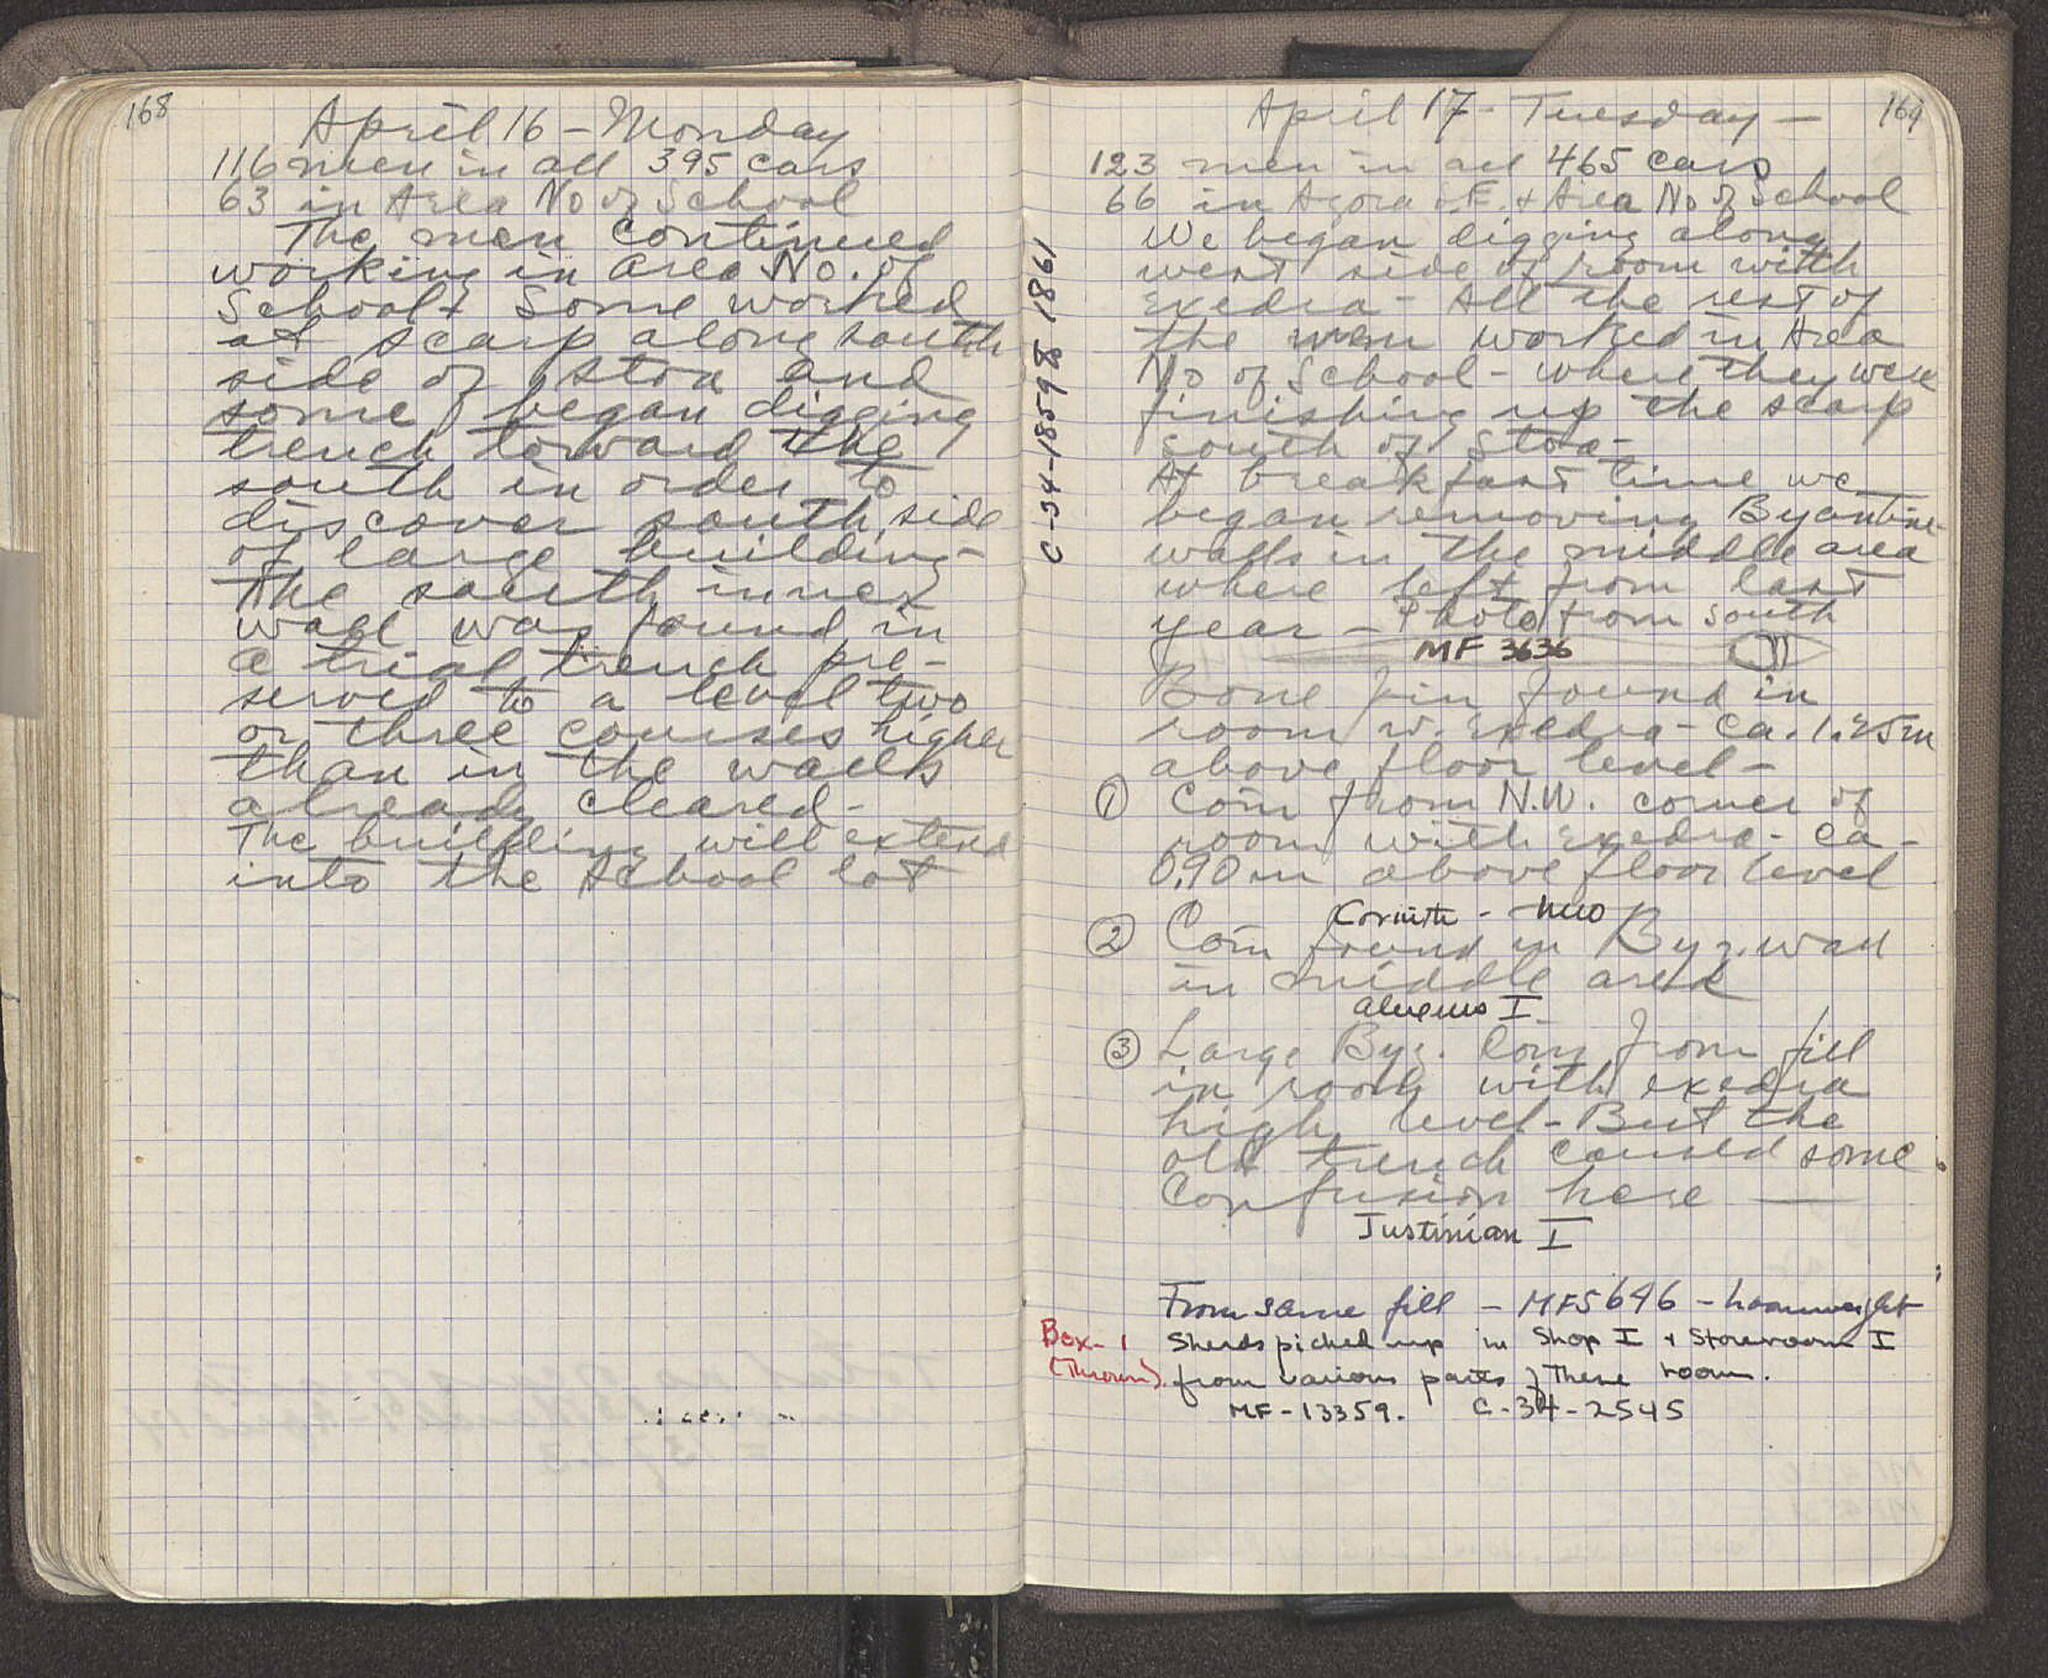 168
April 16 - Monday
116 men in all 395 cars
63 in Area No of School
The men continued
working in area No. of
School + Some worked
at scarp along south
side of stoa and
some began digging
trench toward the
south in order to
discover south side
of large building -
The south inner
wall was found in
a trial trench pre-
served to a level two
or three courses higher
than in the walls
already cleared -
The building will extend
into the School lot
169
April 17 - Tuesday -
123 men in all 465 cars
66 in Agora + Area No of School
We began digging along
west side of room with
exedra - All the rest of
the men worked in Area
No of School - where they were
finishing up the scarp
south of Stoa -
At breakfast time we
began removing Byantine
walls in the middle area
where left from last
year - Photo from south
MF 3636
Bone pin found in
room w. Exedra - Ca. 1.25m
above floor level -
① Coin from N.W. corner of
room with Exedra - Ca -
0.90m above floor level
Corinth -
② Coin found in Byz. wall
in middle area
Alexius I
③ Large Byz. Coin from fill
in room with exedra
high level - But the
old trench caused some
Confusion here —
Justinian I
From same fill - MF5646 - loomweight
Box - 1
(Thrown).
Sherds picked up in Shop I + Storeroom I
from various parts of these room.
MF - 13359. C - 34 - 2545
C-34-1859 & 1861